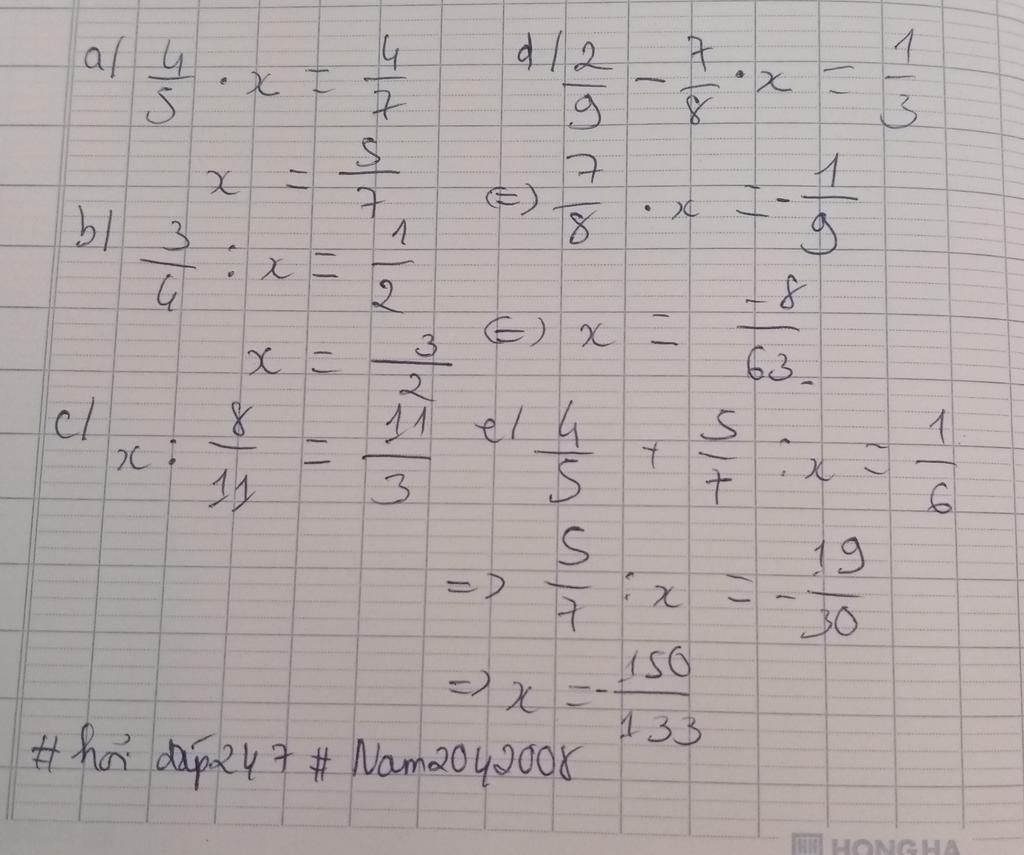 a/ 4/5 · x = 4/7
x = 5/7
b/ 3/4 : x = 1/2
x = 3/2
c/ x : 8/11 = 11/3
d/ 2/9 - 7/8 · x = 1/3
(=) 7/8 · x = -1/9
(=) x = -8/63
e/ 4/5 + 5/7 : x = 1/6
=> 5/7 : x = -19/30
=> x = -150/133
# hỏi đáp247 # Nam2042008
HONG HA